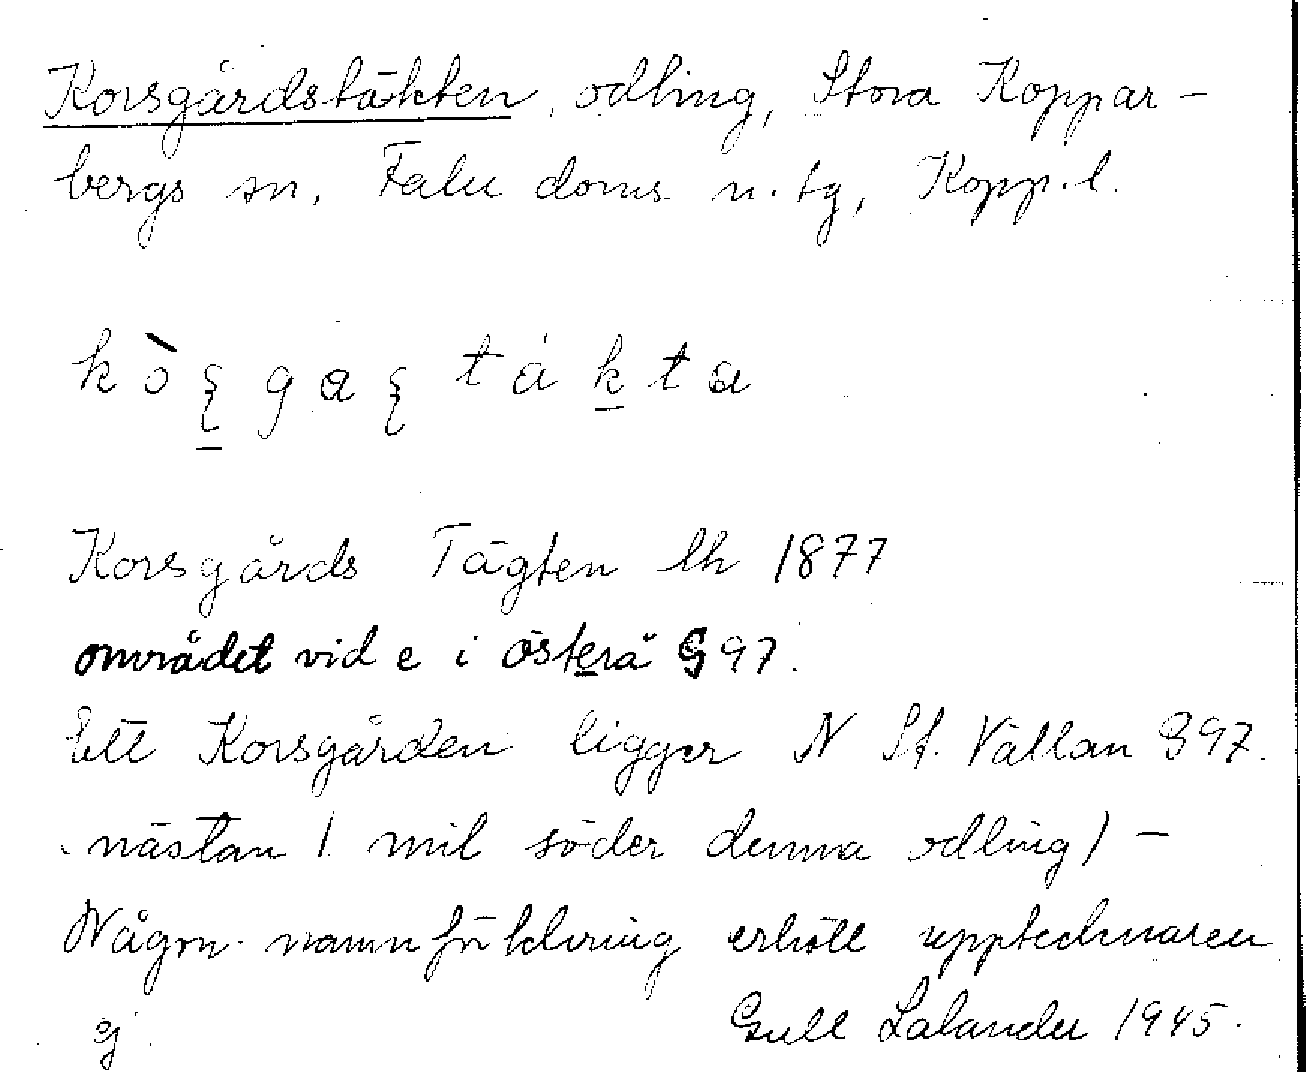 Korsgårdstäkten, odling, Stora Koppar-
bergs sn, Falu doms n. tg, Kopp. l.
Korsgårds Tägten lh 1877
området vid e i österå G97.
Ett Korsgården ligger N St. Vällan G97.
nästan 1 mil söder denna odling) -
Någon namnförklaring erhöll upptecknaren
ej.
Gull Lalander 1945.